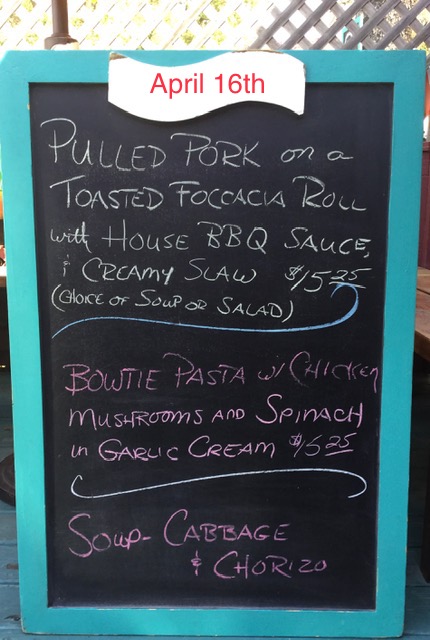 April 16th
PULLED PORK on a
TOASTED FOCCACIA ROLL
with HOUSE BBQ SAUCE,
& CREAMY SLAW $15 25
(CHOICE OF SOUP OR SALAD)
BOWTIE PASTA w/ CHICKEN
MUSHROOMS AND SPINACH
in GARLIC CREAM $15 25
SOUP- CABBAGE
& CHORIZO